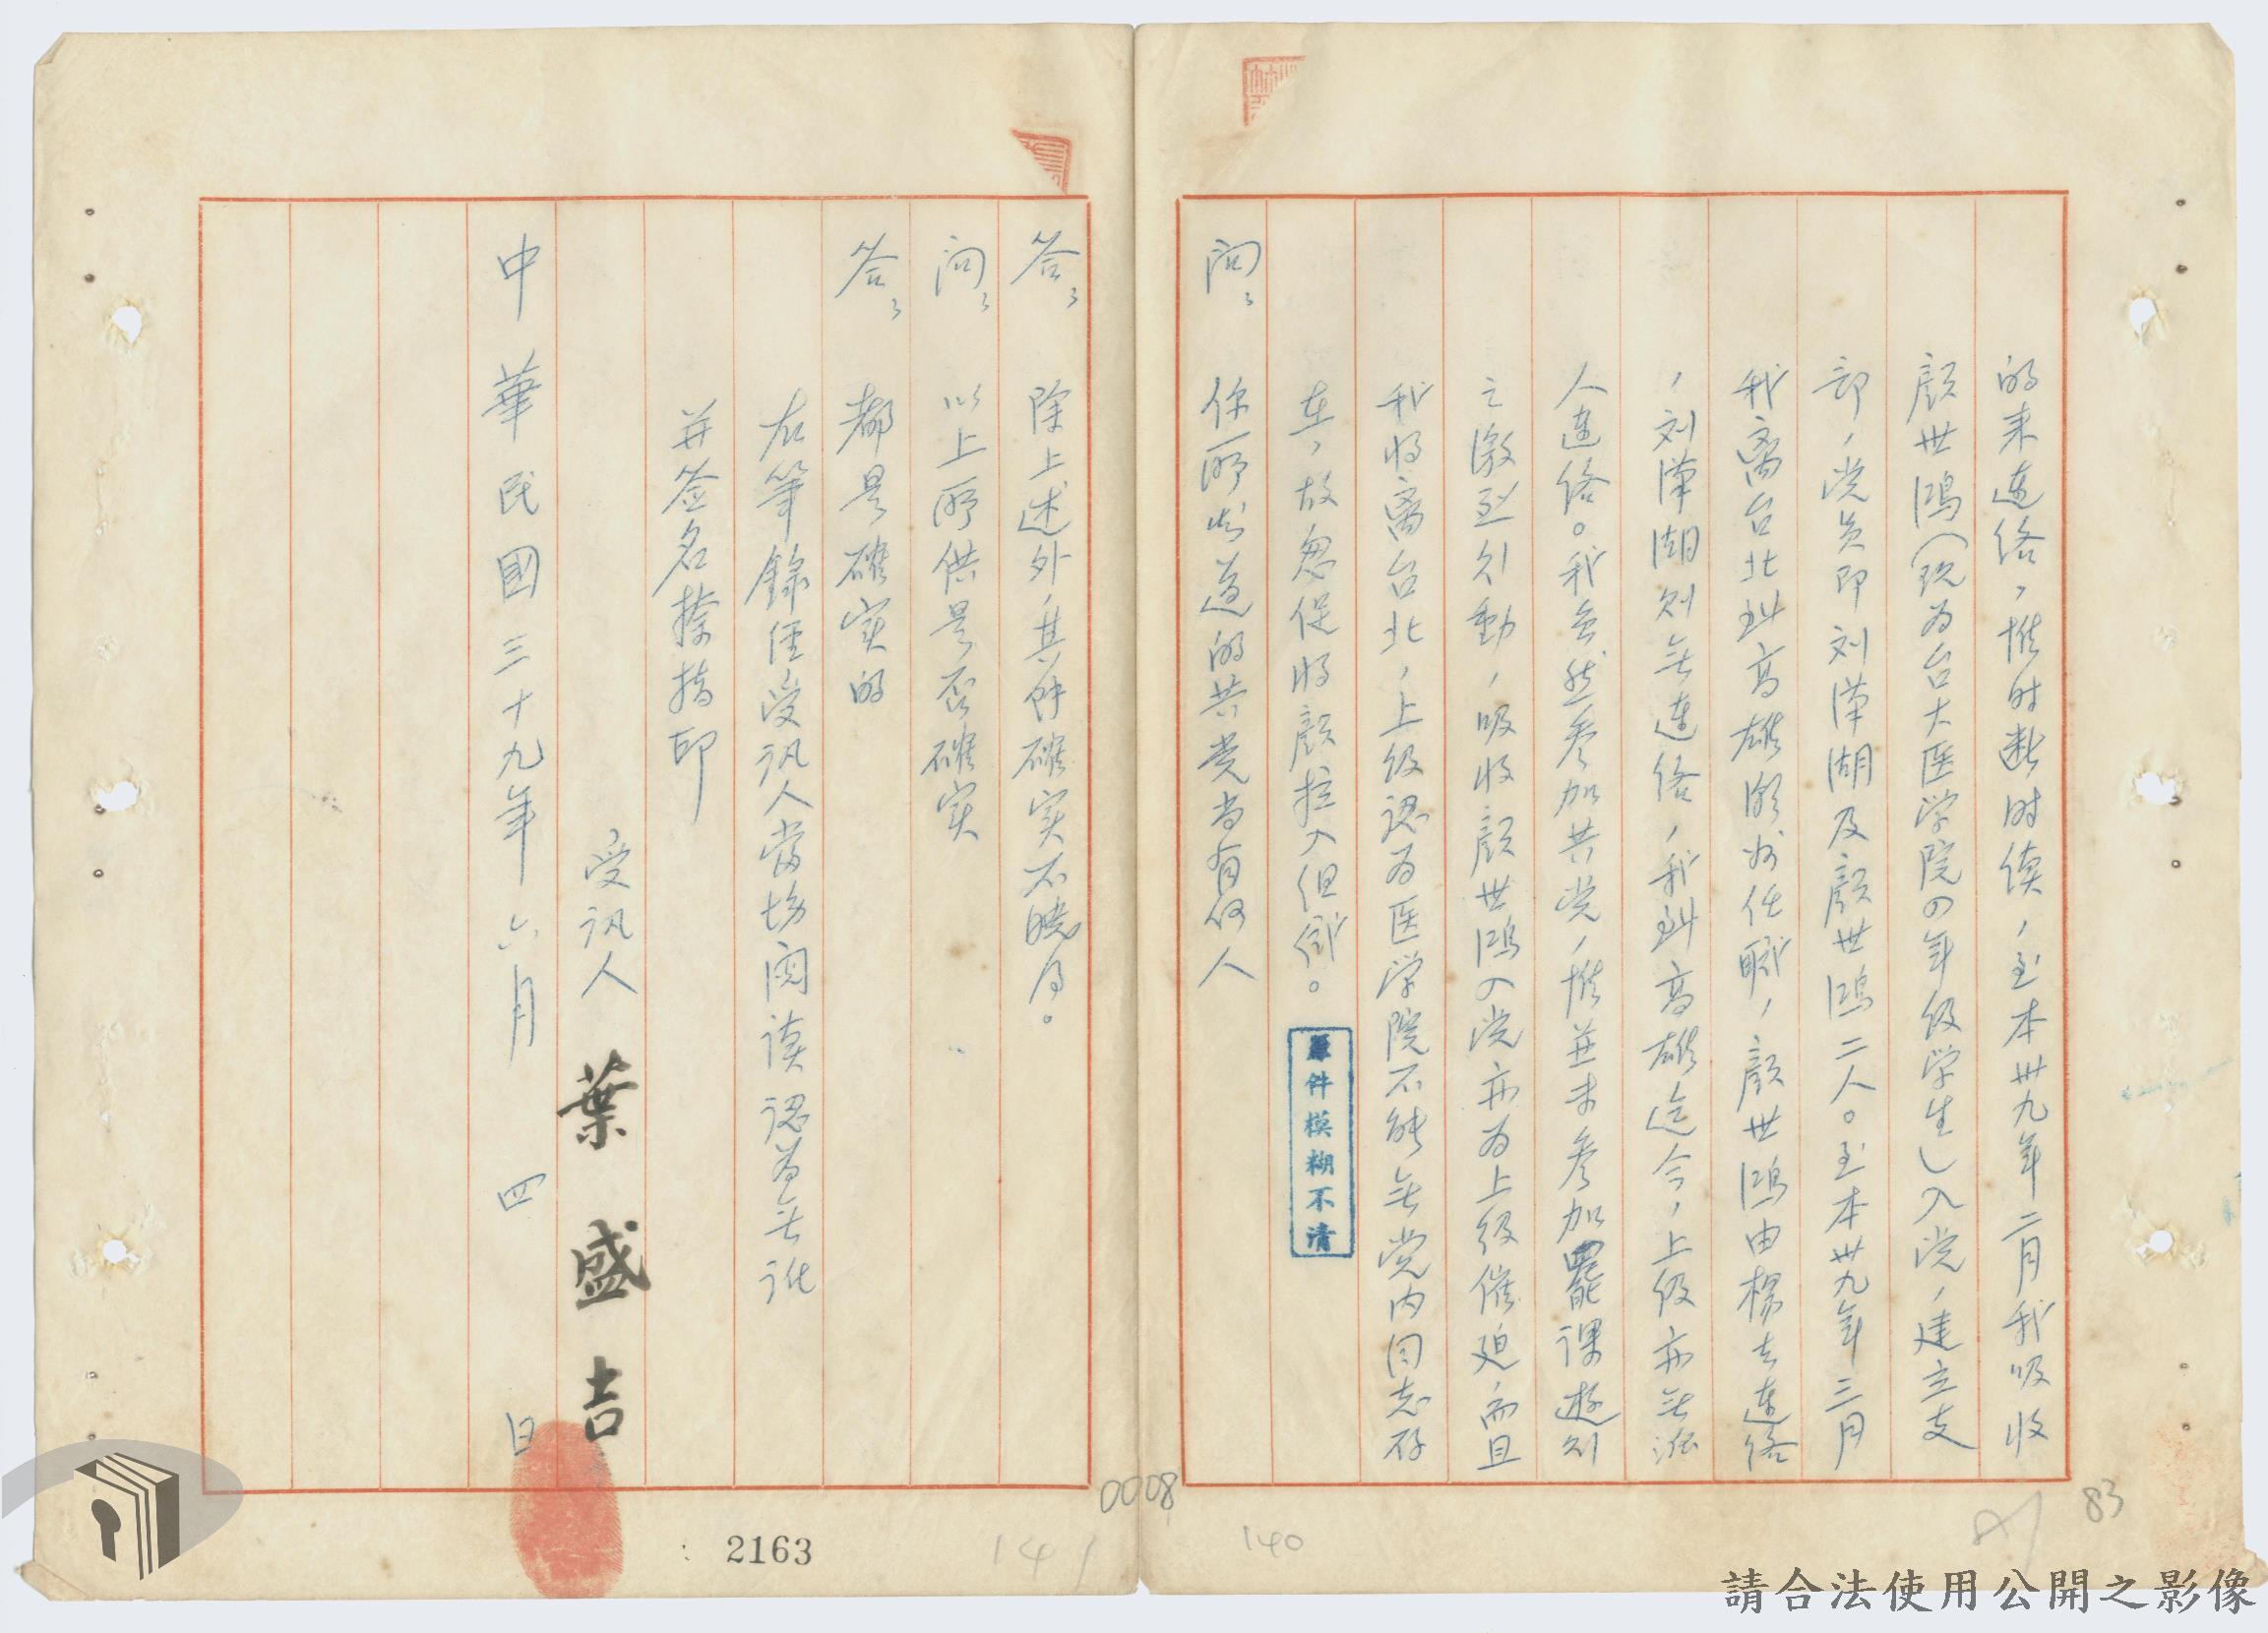 的来連絡，惟时断时續，至本卅九年二月我吸收
顔世鴻（現为台大医学院四年级学生）入党，建立支
部，党员即刘漢湖及顔世鴻二人。至本卅九年三月
我离台北到高雄潮州任職，顔世鴻由楊去連络
，刘漢湖则無連络，我到高雄迄今，上级亦無派
人連络。我虽然参加共党，惟並未参加罷課遊行
之激烈行動，吸收顔世鴻入党亦为上级催廹，而且
我将离台北，上级認为医学院不能無党内同志存
在，故怱促将顔拉入组织。
原件模糊不清
问、你所知道的共党尚有何人
答、除上述外，其餘確实不曉得。
问、以上所供是否確实
答、都是確实的
右筆錄经受訊人當場閱讀認為無訛
并签名捺指印
受訊人 葉盛吉
中華民國三十九年六月四日
0008
140
83
2163
141
請合法使用公開之影像